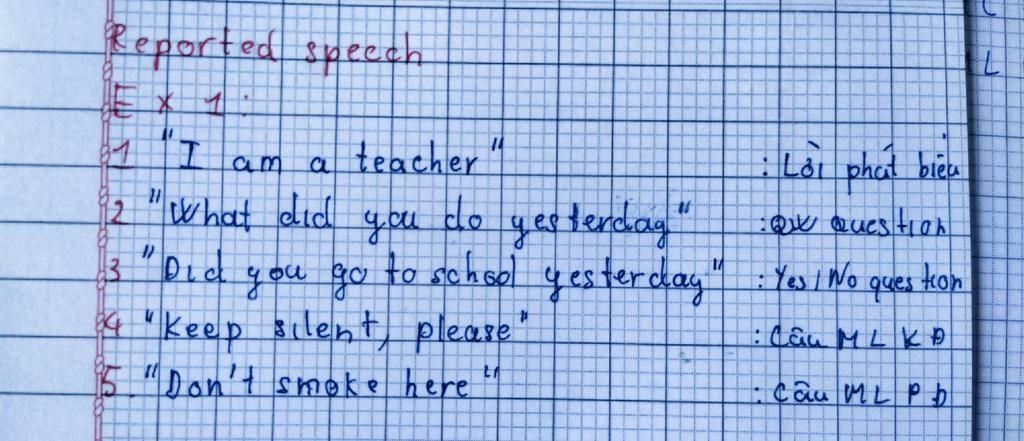 Reported speech
Ex 1:
1 "I am a teacher" : Lời phát biểu
2 "What did you do yesterday" : QW Question
3 "Did you go to school yesterday" : Yes/No question
4 "Keep silent, please" : Câu MLKĐ
5. "Don't smoke here" : Câu MLPĐ
L